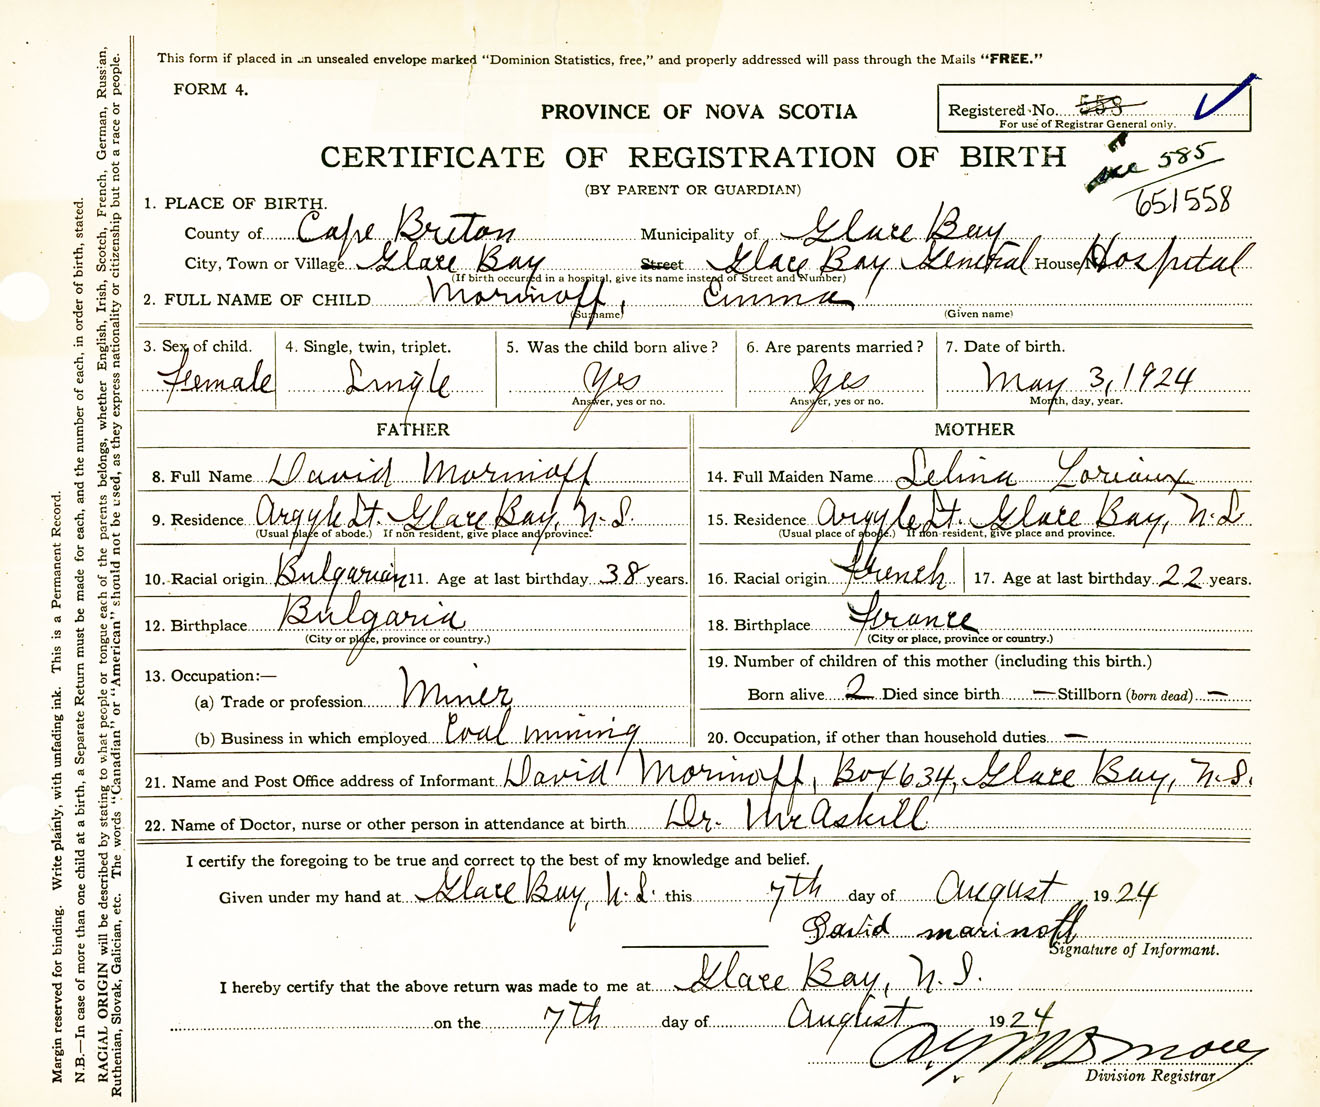 This form if placed in an unsealed envelope marked "Dominion Statistics, free," and properly addressed will pass through the Mails "FREE."
FORM 4.
PROVINCE OF NOVA SCOTIA
Registered No. 558
For use of Registrar General only.
CERTIFICATE OF REGISTRATION OF BIRTH
585
(BY PARENT OR GUARDIAN)
651558
1. PLACE OF BIRTH.
County of Cape Breton Municipality of Glace Bay
City, Town or Village Glace Bay Street Glace Bay General House Hospital
(If birth occurred in a hospital, give its name instead of Street and Number)
2. FULL NAME OF CHILD Morinoff, Emma
(Surname) (Given name)
3. Sex of child. 4. Single, twin, triplet. 5. Was the child born alive? 6. Are parents married? 7. Date of birth.
Female Single Yes Yes May 3, 1924
Answer, yes or no. Answer, yes or no. Month, day, year.
FATHER MOTHER
8. Full Name David Morinoff 14. Full Maiden Name Selina Loriaux
9. Residence Argyle St. Glace Bay, N.S. 15. Residence Argyle St. Glace Bay, N.S.
(Usual place of abode.) If non resident, give place and province. (Usual place of abode.) If non-resident, give place and province.
10. Racial origin Bulgarian 11. Age at last birthday 38 years. 16. Racial origin French 17. Age at last birthday 22 years.
12. Birthplace Bulgaria 18. Birthplace France
(City or place, province or country.) (City or place, province or country.)
13. Occupation:— 19. Number of children of this mother (including this birth.)
(a) Trade or profession Miner Born alive 2 Died since birth — Stillborn (born dead) —
(b) Business in which employed Coal mining 20. Occupation, if other than household duties. —
21. Name and Post Office address of Informant David Morinoff, Box 634, Glace Bay, N.S.
22. Name of Doctor, nurse or other person in attendance at birth Dr. McAskill
I certify the foregoing to be true and correct to the best of my knowledge and belief.
Given under my hand at Glace Bay, N.S. this 7th day of August 1924
David marinoff
Signature of Informant.
I hereby certify that the above return was made to me at Glace Bay, N.S.
on the 7th day of August 1924
Division Registrar
Margin reserved for binding. Write plainly, with unfading ink. This is a Permanent Record.
N.B.—In case of more than one child at a birth, a Separate Return must be made for each, and the number of each, in order of birth, stated.
RACIAL ORIGIN will be described by stating to what people or tongue each of the parents belongs, whether English, Irish, Scotch, French, German, Russian,
Ruthenian, Slovak, Galician, etc. The words "Canadian" or "American" should not be used, as they express nationality or citizenship but not a race or people.